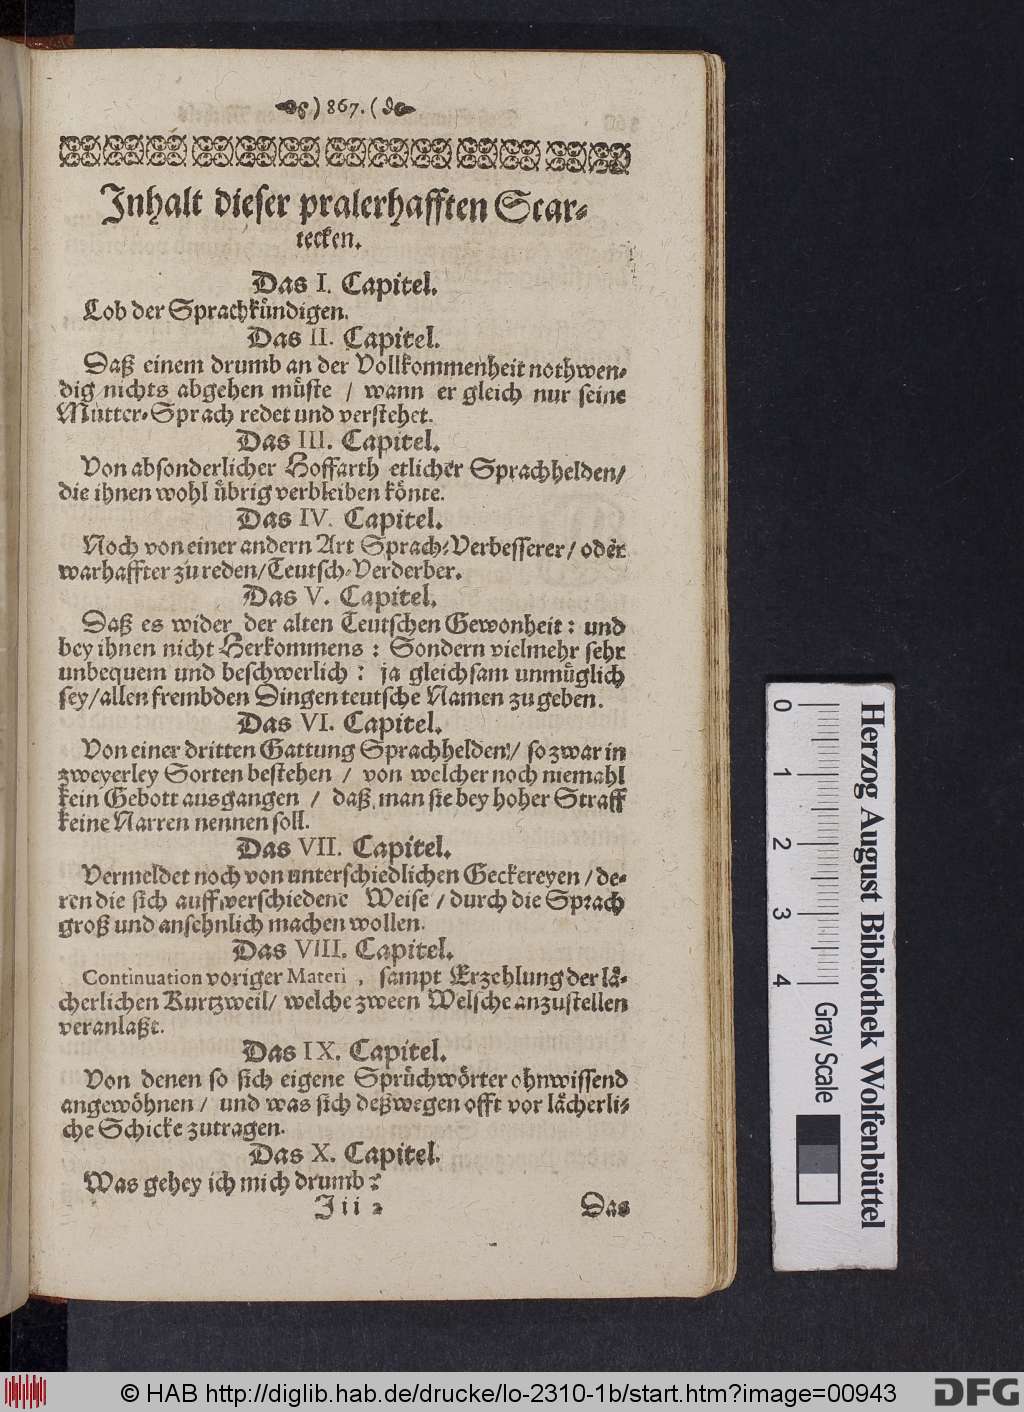 ) 867. (
Inhalt dieser pralerhafften Scar-
tecken.
Das I. Capitel.
Lob der Sprachkündigen.
Das II. Capitel.
Daß einem drumb an der Vollkommenheit nothwen-
dig nichts abgehen müste / wann er gleich nur seine
Mutter-Sprach redet und verstehet.
Das III. Capitel.
Von absonderlicher Hoffarth etlicher Sprachhelden/
die ihnen wohl übrig verbleiben könte.
Das IV. Capitel.
Noch von einer andern Art Sprach-Verbesserer / oder
warhaffter zu reden/Teutsch-Verderber.
Das V. Capitel.
Daß es wider der alten Teutschen Gewonheit: und
bey ihnen nicht Herkommens : Sondern vielmehr sehr
unbequem und beschwerlich : ja gleichsam unmüglich
sey/allen frembden Dingen teutsche Namen zu geben.
Das VI. Capitel.
Von einer dritten Gattung Sprachhelden!/ so zwar in
zweyerley Sorten bestehen / von welcher noch niemahl
kein Gebott ausgangen / daß man sie bey hoher Straff
keine Narren nennen soll.
Das VII. Capitel.
Vermeldet noch von unterschiedlichen Geckereyen / de-
ren die sich auff verschiedene Weise / durch die Sprach
groß und ansehnlich machen wollen.
Das VIII. Capitel.
Continuation voriger Materi , sampt Erzehlung der lä-
cherlichen Kurtzweil/ welche zween Welsche anzustellen
veranlaßt.
Das IX. Capitel.
Von denen so sich eigene Sprüchwörter ohnwissend
angewöhnen / und was sich deßwegen offt vor lächerli-
che Schicke zutragen.
Das X. Capitel.
Was gehey ich mich drumb?
Iii 2 Das
0 1 2 3 4 Gray Scale
Herzog August Bibliothek Wolfenbüttel
© HAB http://diglib.hab.de/drucke/lo-2310-1b/start.htm?image=00943 DFG